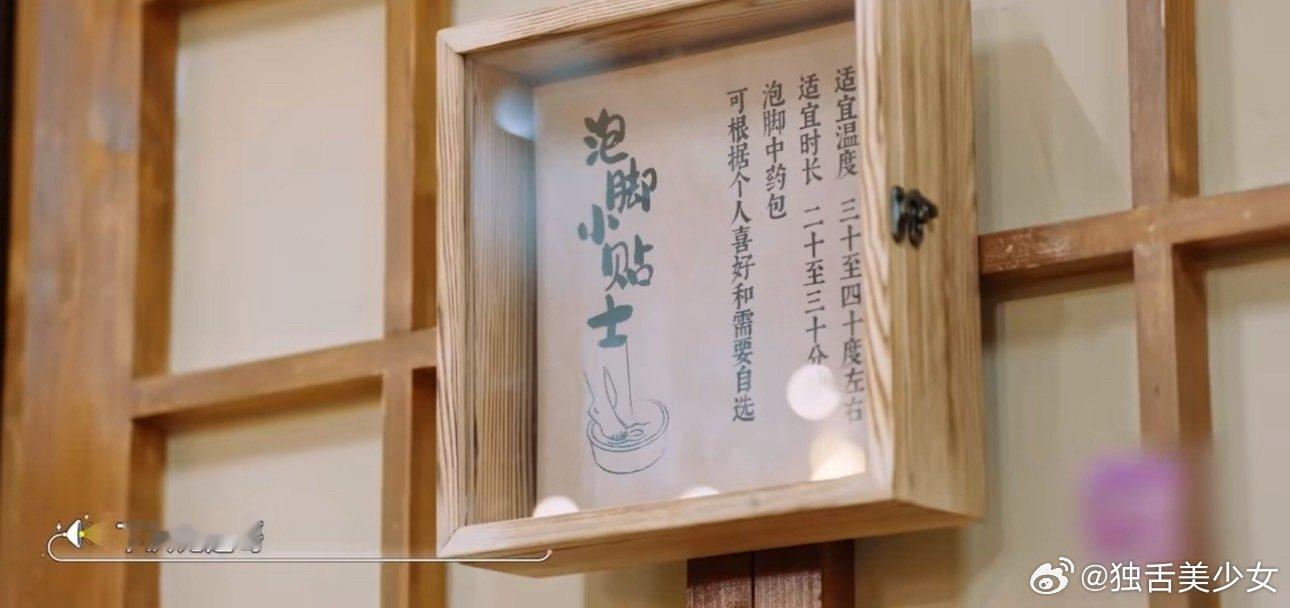 适宜温度 三十至四十度左右
适宜时长 二十至三十分
泡脚中药包
可根据个人喜好和需要自选
泡脚小贴士
@独舌美少女